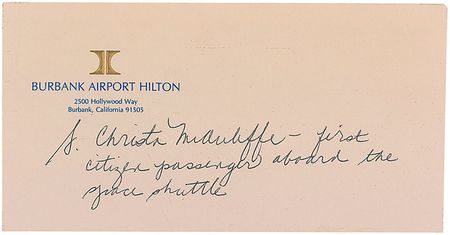 BURBANK AIRPORT HILTON
2500 Hollywood Way
Burbank, California 91505
S. Christa McAuliffe - first
citizen passenger aboard the
space shuttle